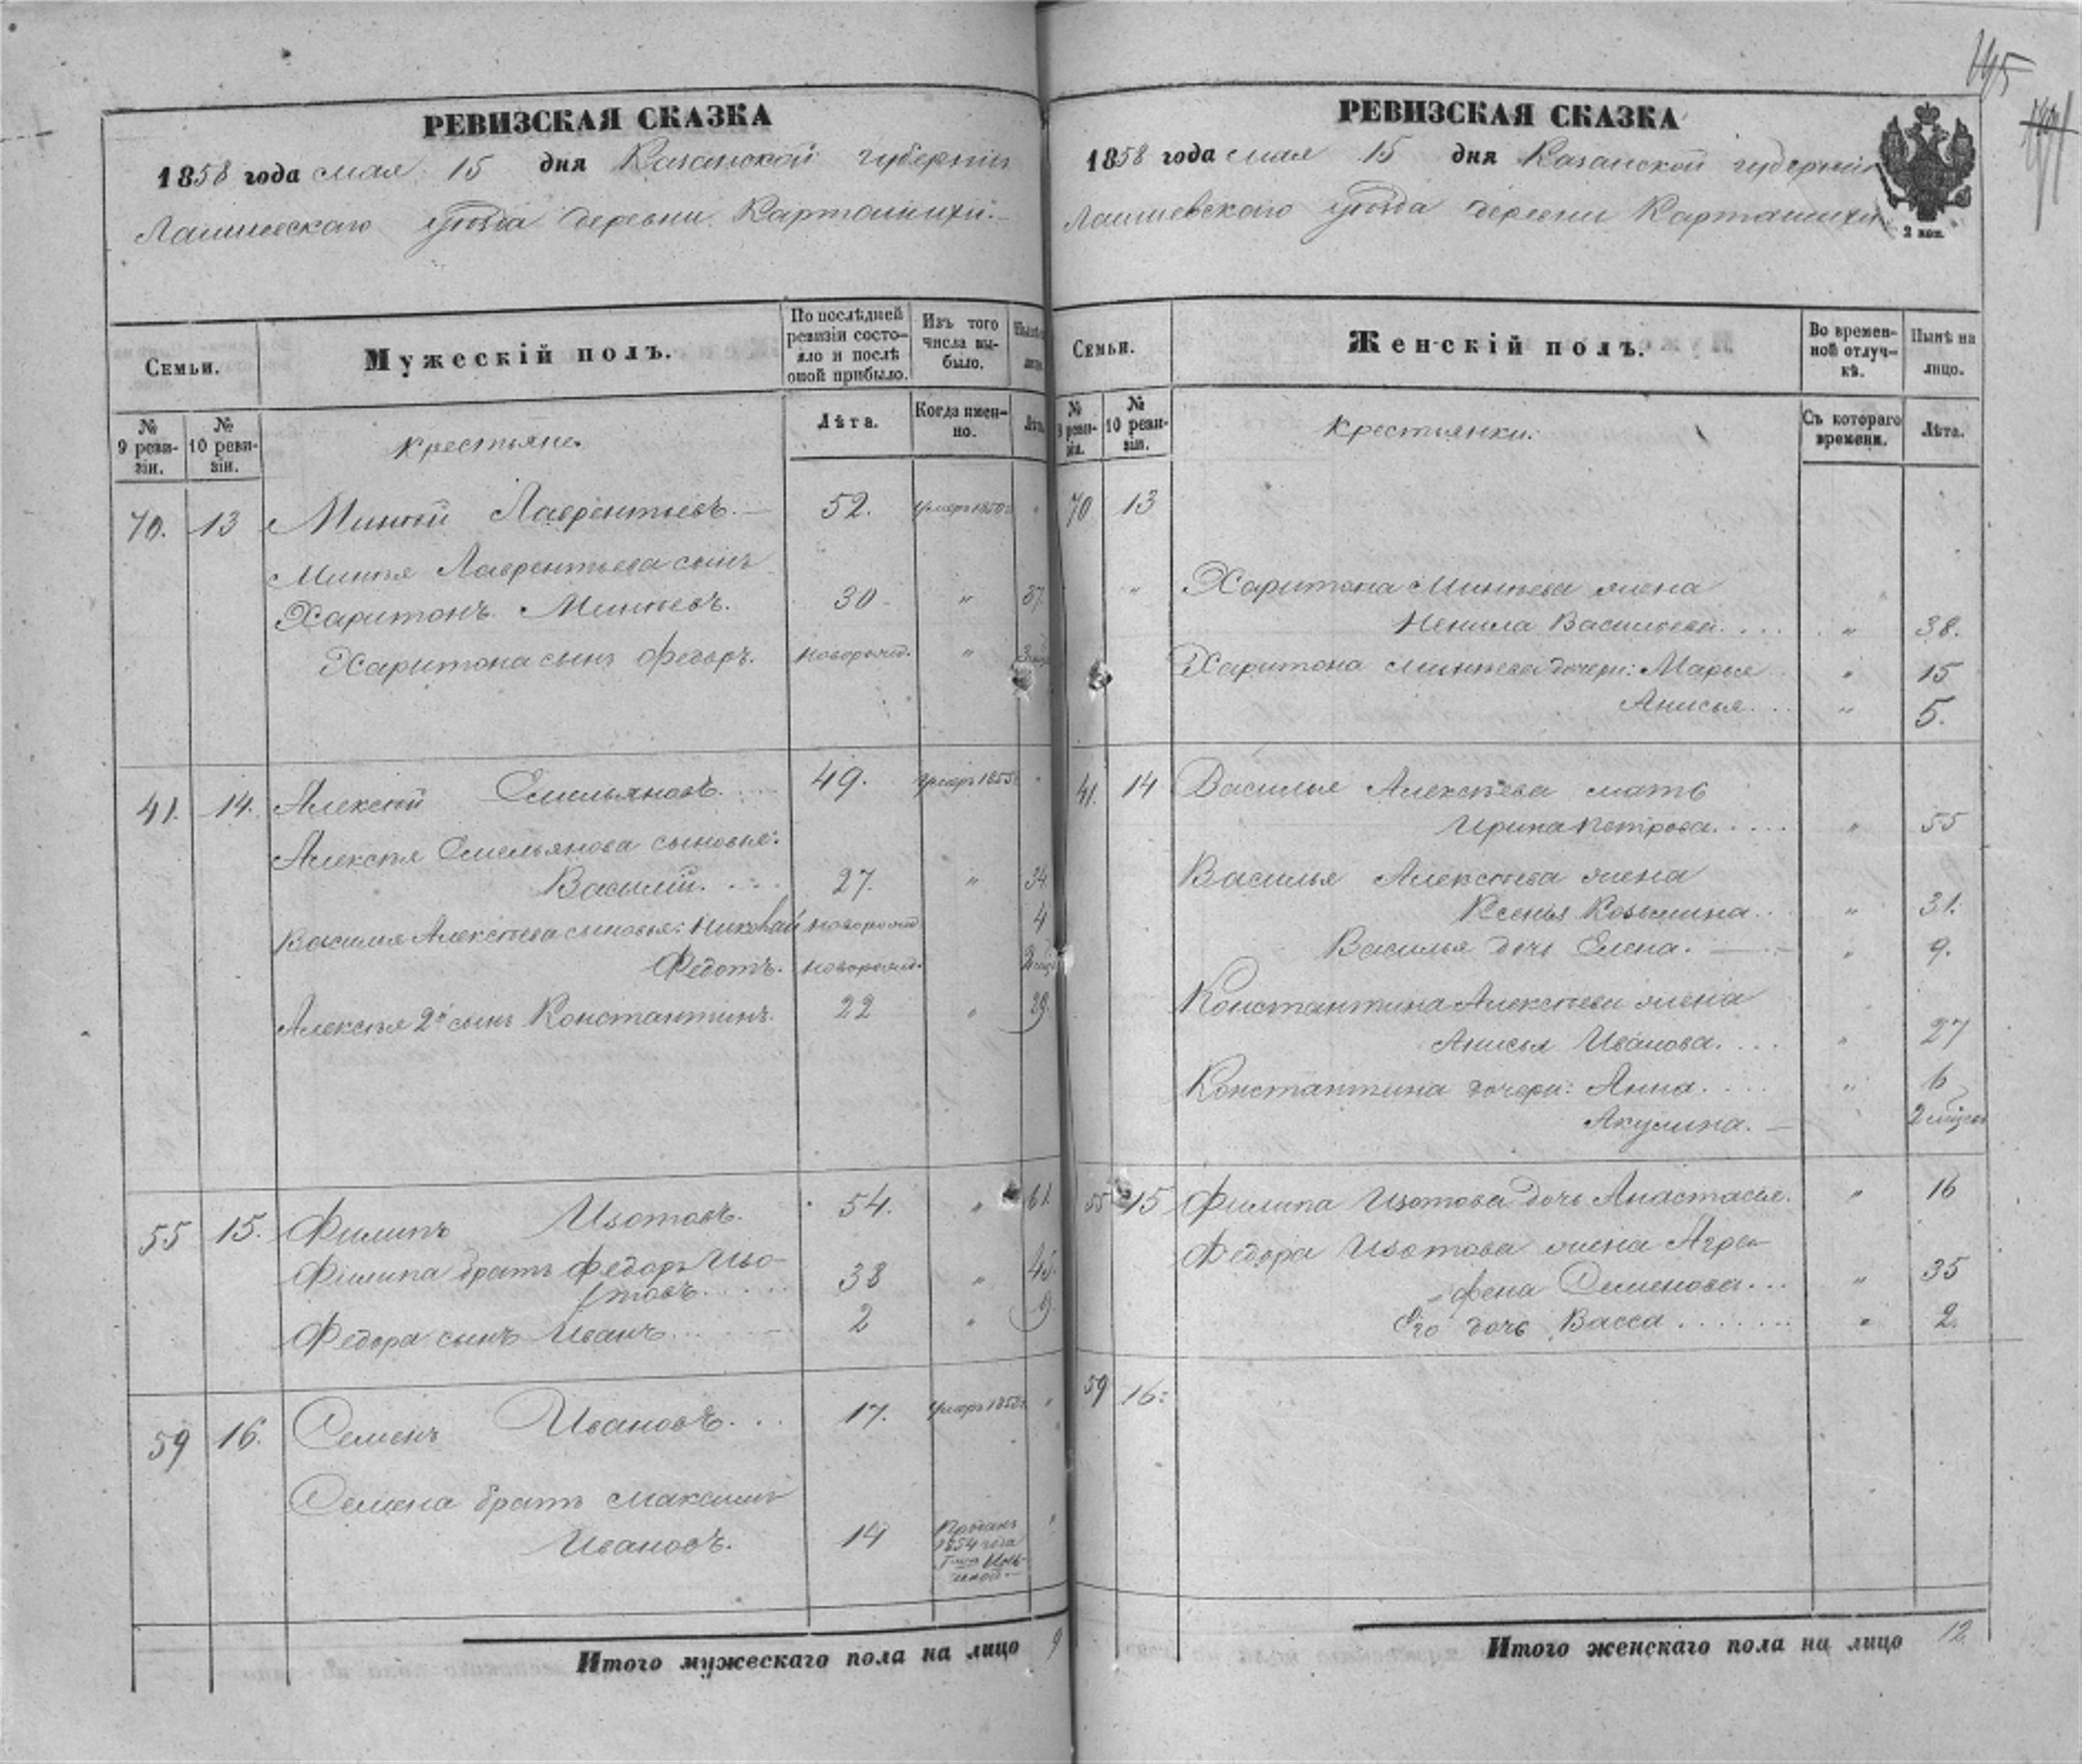 РЕВИЗСКАЯ СКАЗКА
1858 года мая 15 дня Казанской губерніи
Лаишевскаго уѣзда деревни Карташихи.
Семьи.
Мужескій полъ.
По послѣдней ревизіи состо-
яло и послѣ
оной прибыло.
Изъ того
числа вы-
было.
№
9 реви-
зіи.
№
10 реви-
зіи.
крестьяне
Лѣта.
Когда имен-
но.
Лѣта.
70. 13 Миней Лаврентьевъ. 52. умеръ 1850 "
Минея Лаврентьева сынъ
Харитонъ Минеевъ. 30 " 37.
Харитона сынъ Федоръ. новорожд. "
41. 14. Алексей Емельяновъ. 49. умеръ 1855 "
Алексея Емельянова сыновья:
Василій. 27. " 34.
Василия Алексеева сыновья: Николай новорожд 4
Федотъ. новорожд.
Алексея 2й сынъ Константинъ. 22 " 29.
55 15. Филипъ Изотовъ. 54. " 61.
Филипа братъ Федоръ Изо-
товъ. 38 " 45.
Федора сынъ Иванъ 2 " 9
59 16. Семенъ Ивановъ. 17. умеръ 185 "
Семена братъ Максимъ
Ивановъ. 14 Проданъ
1854 года
"
Итого мужескаго пола на лицо 9
РЕВИЗСКАЯ СКАЗКА
1858 года мая 15 дня Казанской губерніи
Лаишевскаго уѣзда деревни Карташихи
2 коп.
Семьи.
Женскій полъ.
Во времен-
ной отлуч-
кѣ.
Нынѣ на
лицо.
№
9 реви-
зіи.
№
10 реви-
зіи.
крестьянки.
Съ котораго
времени.
Лѣта.
70 13
" Харитона Минеева жена
Ненила Васильева. " 38.
Харитона Минеева дочери: Марья " 15
Анисья. " 5.
41. 14 Василья Алексеева мать
Ирина Петрова. " 55
Василья Алексеева жена
Ксенья Козьмина. " 31.
Василья дочь Елена. " 9.
Константина Алексеева жена
Анисья Иванова. " 27
Константина дочери: Анна. " 6
Акулина. 2 месяца
55 15 Филипа Изотова дочь Анастасья. " 16
Федора Изотова жена Агра-
фена Семенова. " 35
Его дочь Васса " 2.
59 16.
Итого женскаго пола на лицо 12